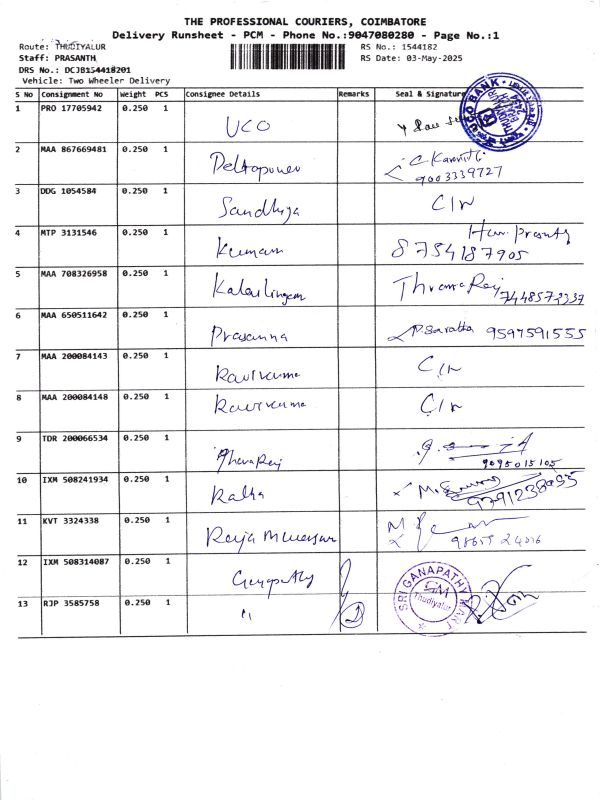 THE PROFESSIONAL COURIERS, COIMBATORE
Delivery Runsheet - PCM - Phone No.:9047080280 - Page No.:1
Route: THUDIYALUR
RS No.: 1544182
Staff: PRASANTH
RS Date: 03-May-2025
DRS No.: DCJB154418201
Vehicle: Two Wheeler Delivery
S No Consignment No Weight PCS Consignee Details Remarks Seal & Signature
1 PRO 17705942 0.250 1 UCO
UCO BANK
2 MAA 867669481 0.250 1
9003339727
3 DDG 1054584 0.250 1 Sandhiya
4 MTP 3131546 0.250 1 Kumar
8754187905
5 MAA 708326958 0.250 1
6 MAA 650511642 0.250 1 Prasanna 9597591555
7 MAA 200084143 0.250 1 Ravikumar
8 MAA 200084148 0.250 1 Ravikumar
9 TDR 200066534 0.250 1
9095015105
10 IXM 508241934 0.250 1
11 KVT 3324338 0.250 1
12 IXM 508314087 0.250 1 Ganapathy
13 RJP 3585758 0.250 1 "
SRI GANAPATHY MART
GM
Thudiyalur